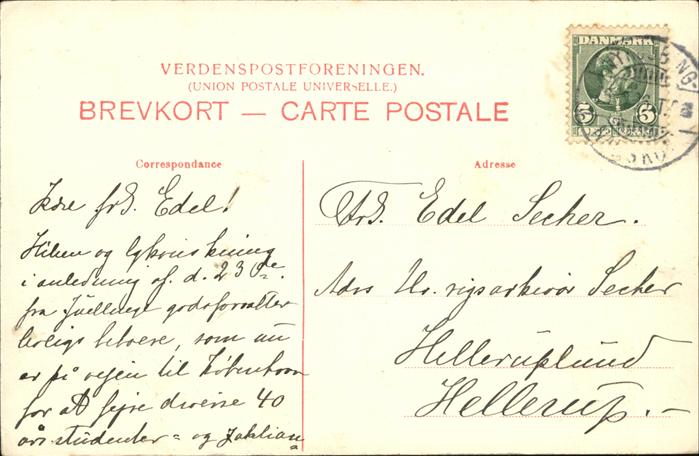 DANMARK
5 5
VERDENSPOSTFORENINGEN.
(UNION POSTALE UNIVERSELLE.)
BREVKORT — CARTE POSTALE
Correspondance
Kære frk. Edel!
Hilsen og lykønskning
i anledning af d. 23de.
fra Juellinge godsforvalter
boligs beboere, som nu
er på vejen til København
for at fejre diverse 40
års studenter= og
Adresse
Frk. Edel Secher.
Adrs Hr. rigsarkivar Secher
Helleruplund
Hellerup.-